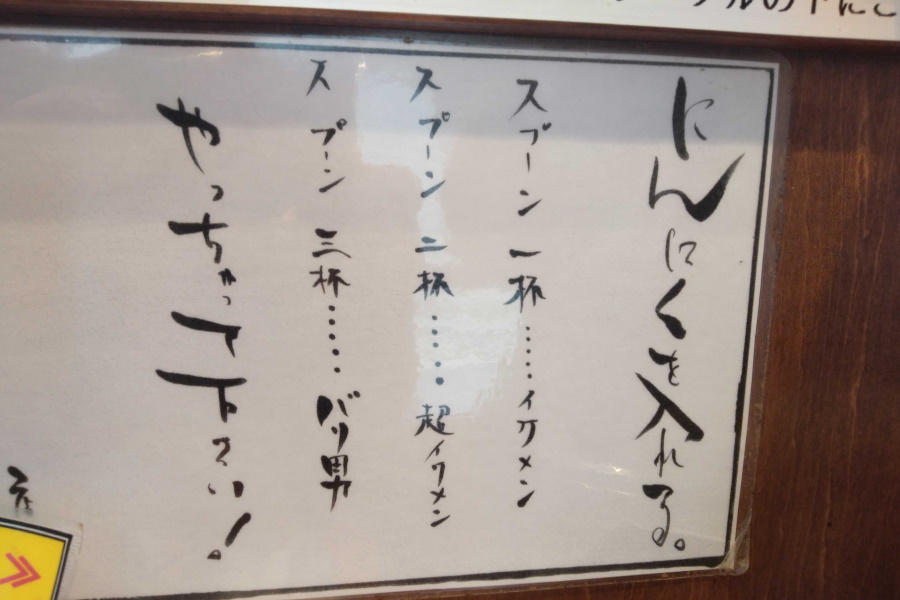 にんにくを入れる。
スプーン一杯……イケメン
スプーン二杯……超イケメン
スプーン三杯……バリ男
やっちゃって下さい!